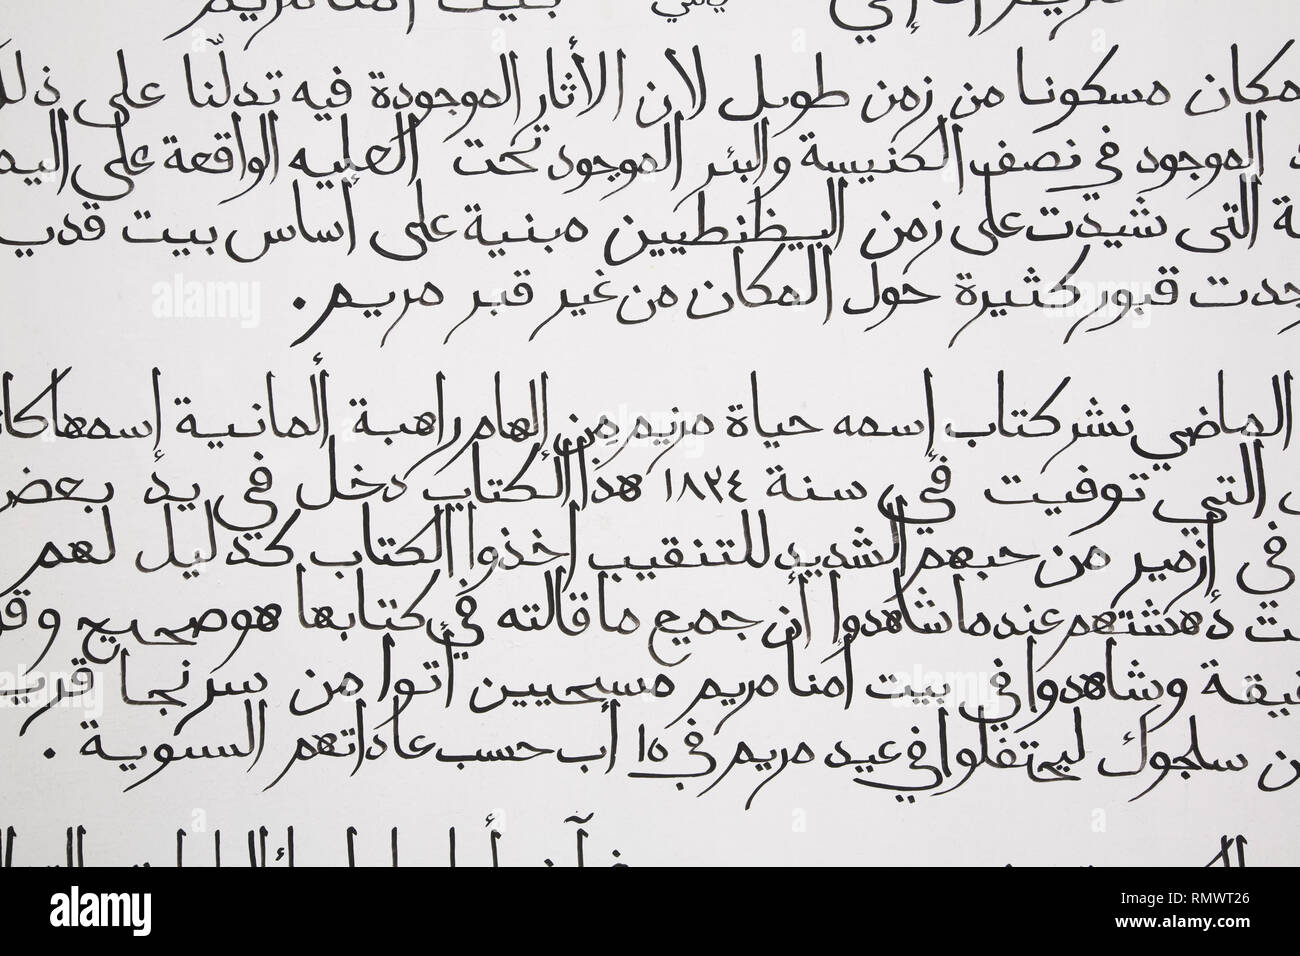 بيت امنا مريم
مكان مسكونا من زمن طويل لان الأثار الموجودة فيه تدلّنا على ذلك
الموجود في نصف الكنيسة والبئر الموجود تحت العليه الواقعة على
التى شيدت على زمن البيظنطيين مبنية على إساس بيت
قبور كثيرة حول المكان من غير قبر مريم .
الماضي نشر كتاب إسمه حياة مريم مِن إلهام راهبة ألمانية إسمها
التي توفيت في سنة ١٨٢٤ هذا الكتاب دخل في يدُ بعض
في ازمير من حبهم الشديد للتنقيب اخذوا الكتاب كدليل لهم
دهشتهم عندما شاهدوا أن جميع ما قالته في كتابها هو صحيح
وشاهدوا في بيت امنا مريم مسيحيين أتوا من سرنجا
سلجوك ليحتفلوا في عيد مريم في ١٥ أب حسب عاداتهم السنوية .
alamy
Image ID: RMWT26
www.alamy.com